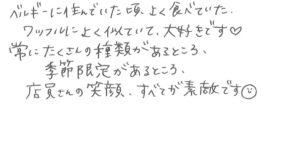 ベルギーに住んでいた頃、よく食べていた
ワッフルによく似ていて、大好きです♡
常にたくさんの種類があるところ、
季節限定があるところ、
店員さんの笑顔、すべてが素敵です☺